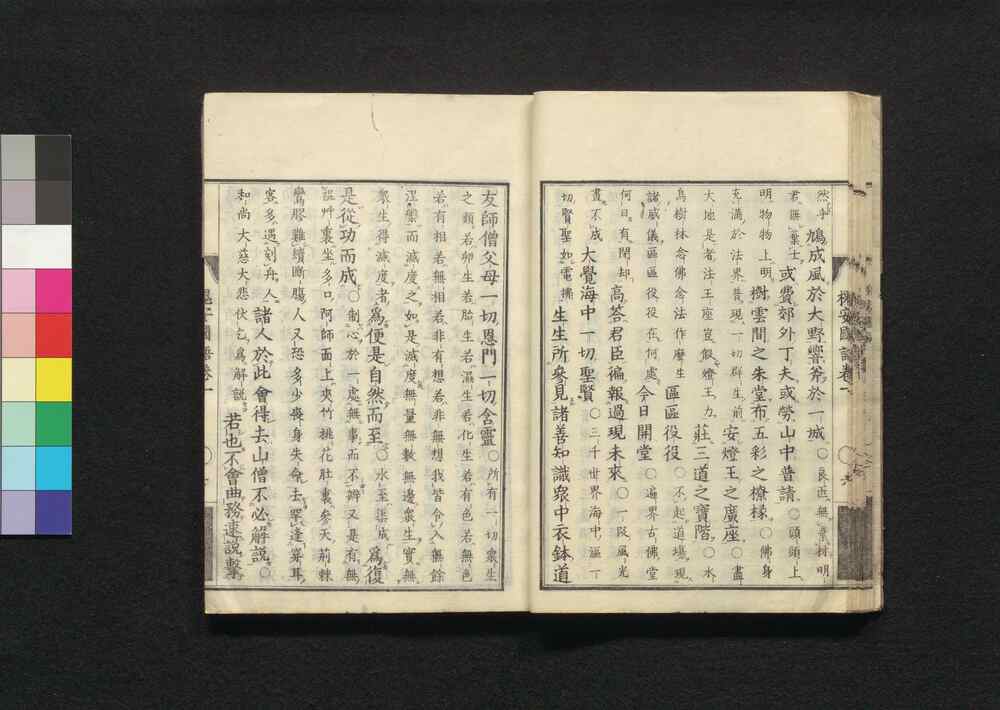 然乎鳩成風於大野響斧於一城○良匠無棄材明
君無棄士或費郊外丁夫或勞山中普請○頭頭上
明物物上明樹雲間之朱堂布五彩之橑椽○佛身
充滿於法界普現一切群生前安燈王之廣座○盡
大地是者法王座豈假燈王力莊三道之寶階○水
鳥樹林念佛念法作麼生區區役役○不起道場現
諸威儀區區役役在何處今日開堂○遍界古佛堂
何日有閉却高答君臣徧報過現未來○一段風光
畫不成大覺海中一切聖賢○三千世界海中漚一
切賢聖如電拂生生所參見諸善知識衆中衣鉢道
友師僧父母一切恩門一切含靈○所有一切衆生
之類若卵生若胎生若濕生若化生若有色若無色
若有相若無相若有想若非無想我皆令入無餘
涅槃而滅度之如是滅度無量無數無邊衆生實無
衆生得滅度者爲便是自然而至○水至渠成爲復
是從功而成○制心於一處無事而不辨又是有無
艸裏坐多口阿師面上夾竹桃花肚裏參天荊棘
鸞膠難續斷腸人又恐多少喪身失命去
客多遇刻舟人諸人於此會得去山僧不必解說○
和尚大慈大悲伏乞爲解說若也不會曲務速說擊
槐安國語卷一